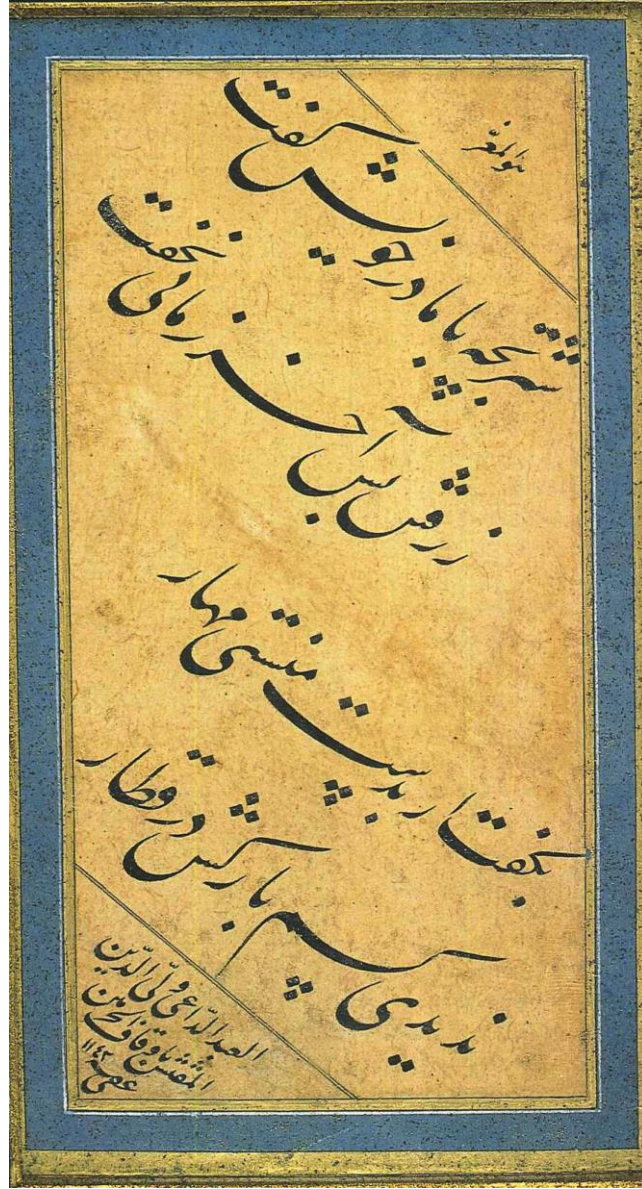 هو المعز
شتر بچه با مادر خویش گفت
ز رفتن بس آخر زمانی بخفت
بگفت ار بدست منستی مهار
ندیدی کسم بارکش در قطار
العبد الداعی ولی الدین
المفتش باوقاف الحرمین
عفی عنه ١١٤٣